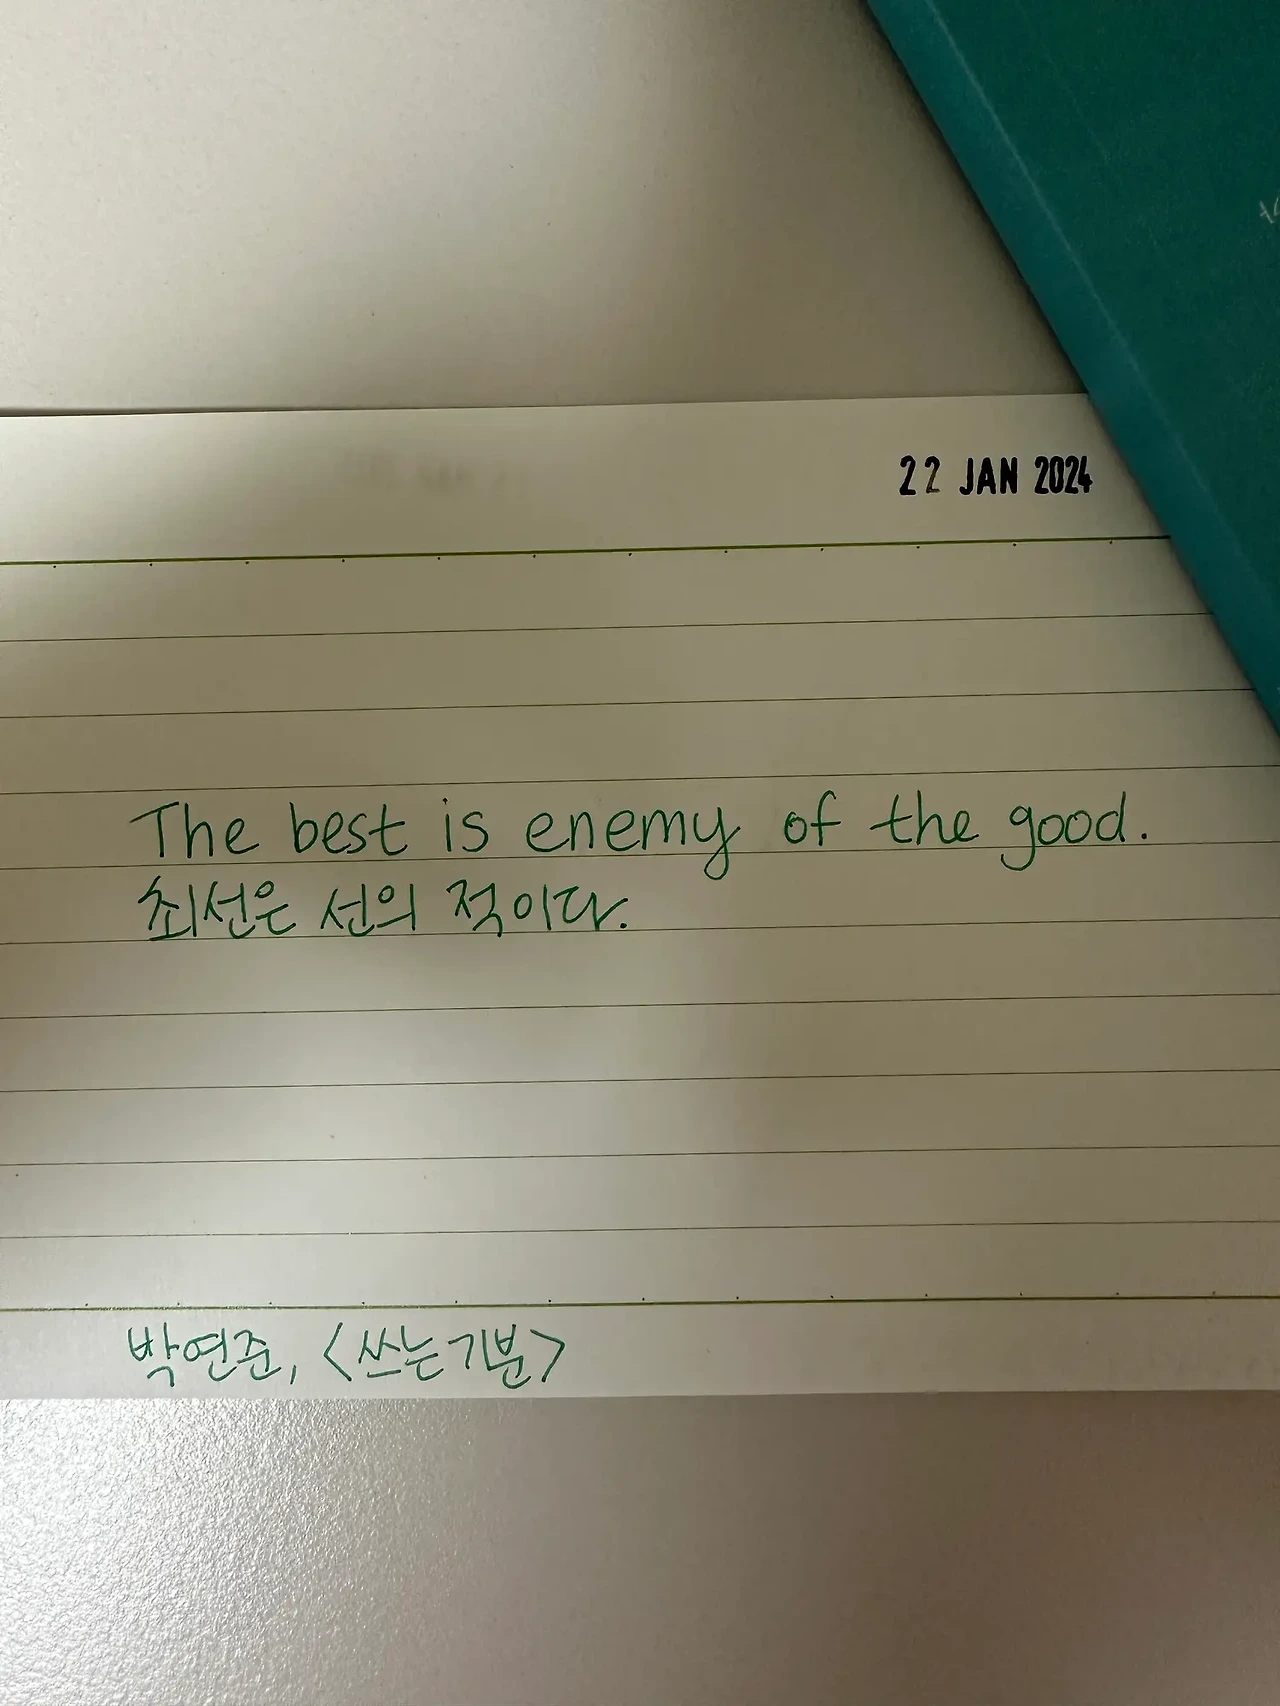 22 JAN 2024
The best is enemy of the good.
최선은 선의 적이다.
박연준, <쓰는기분>